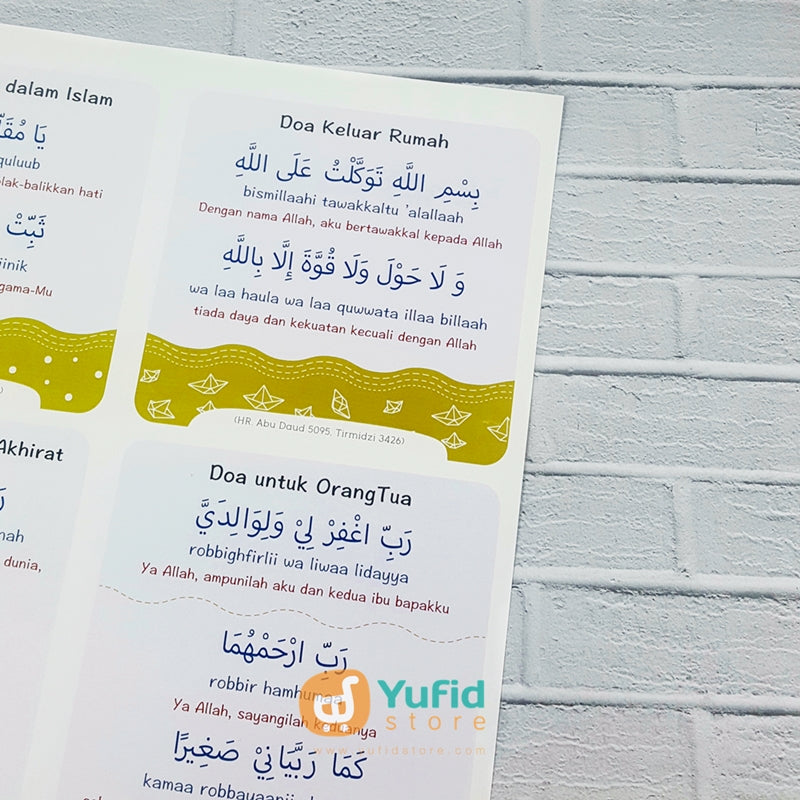 dalam Islam
quluub
olak-balikkan hati
ثَبِّتْ
iinik
gama-Mu
Doa Keluar Rumah
بِسْمِ اللَّهِ تَوَكَّلْتُ عَلَى اللَّهِ
bismillaahi tawakkaltu 'alallaah
Dengan nama Allah, aku bertawakkal kepada Allah
وَ لَا حَوْلَ وَلَا قُوَّةَ إِلَّا بِاللَّهِ
wa laa haula wa laa quwwata illaa billaah
tiada daya dan kekuatan kecuali dengan Allah
(HR. Abu Daud 5095, Tirmidzi 3426)
Akhirat
nah
dunia,
Doa untuk OrangTua
رَبِّ اغْفِرْ لِيْ وَلِوَالِدَيَّ
robbighfirlii wa liwaa lidayya
Ya Allah, ampunilah aku dan kedua ibu bapakku
رَبِّ ارْحَمْهُمَا
robbir hamhumaa
Ya Allah, sayangilah keduanya
كَمَا رَبَّيَانِيْ صَغِيرًا
kamaa robbayaanii
Yufid
store
www.yufidstore.com